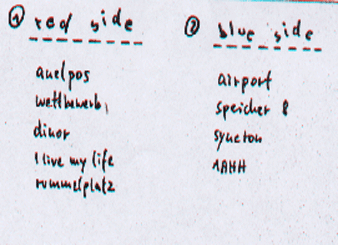 ① red side
auelpos
wettbewerb,
dinor
I live my life
rummelplatz
② blue side
airport
speicher 8
syncton
AAHH